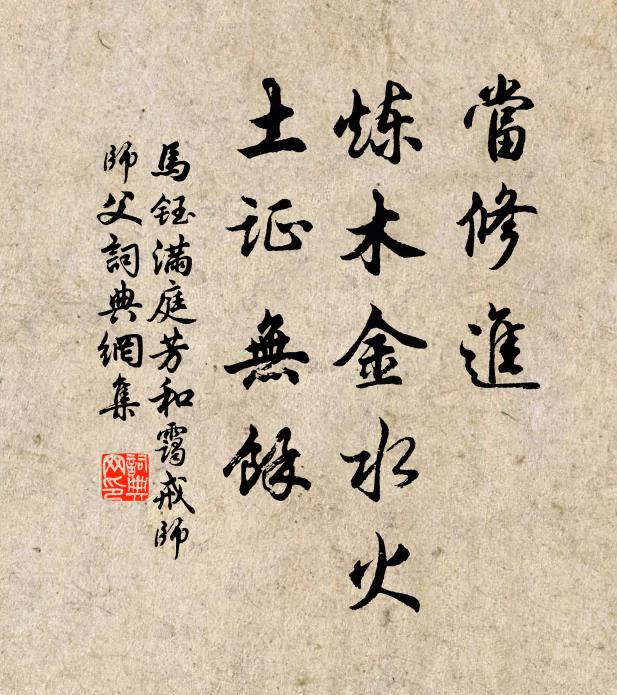 當修進
炼木金水火
土证無餘
馬鈺满庭芳和靄戒師
師父詞典網集
詞典
网印